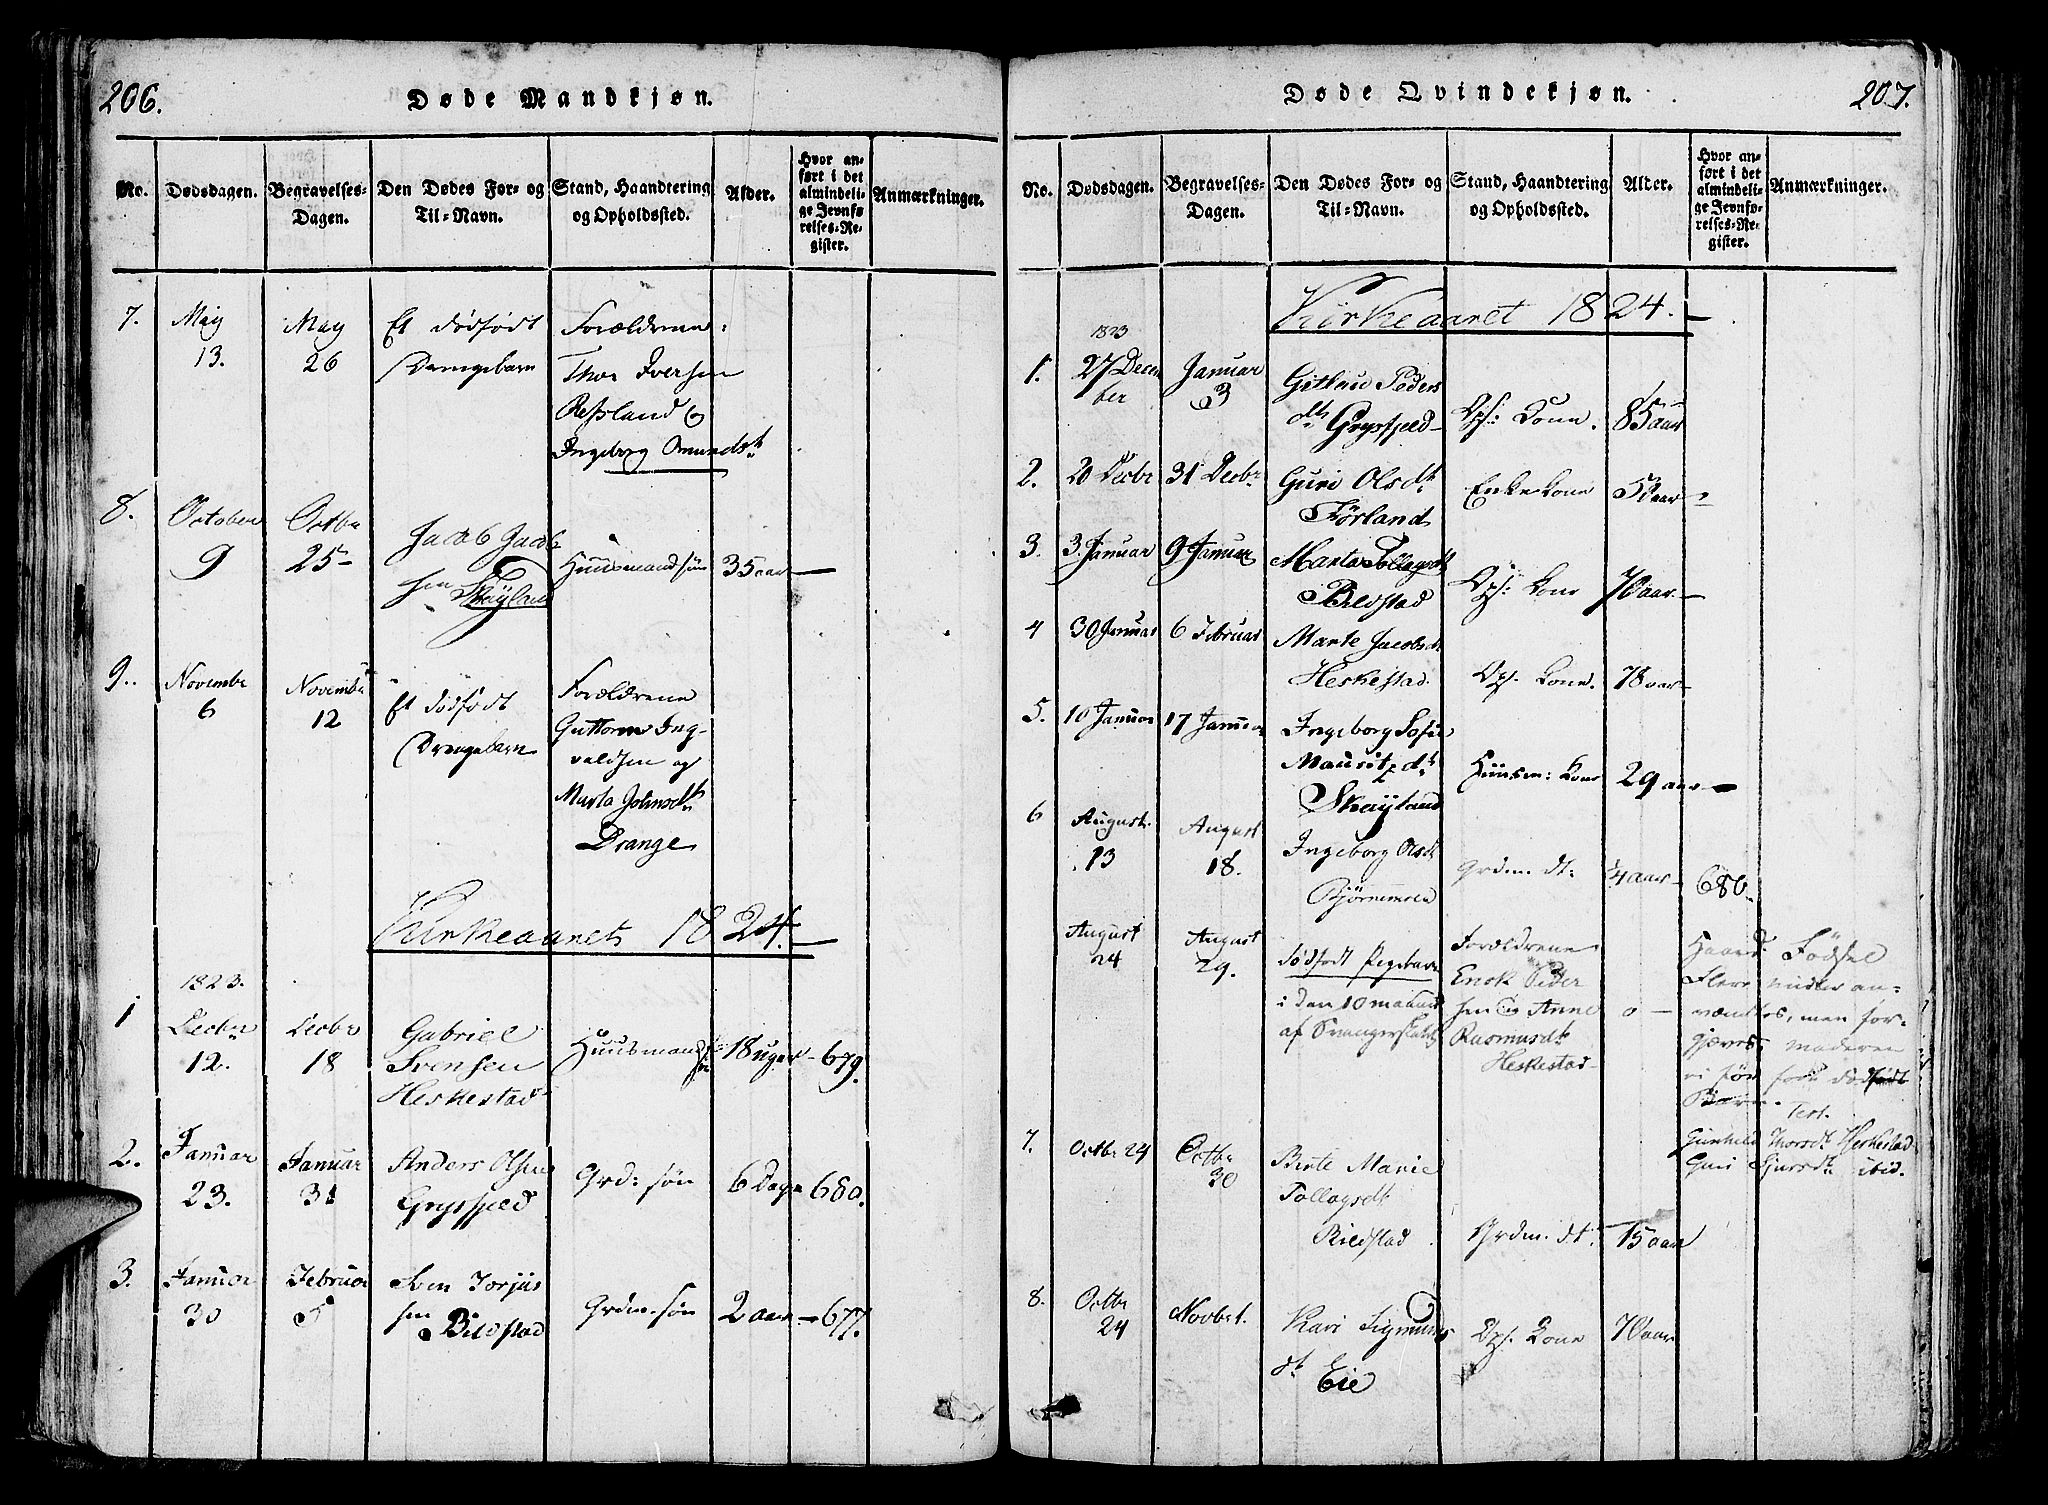 206.
Døde Mandkjøn.
No.
Dødsdagen.
Begravelses-
Dagen.
Den Dødes For- og
Til-Navn.
Stand, Haandtering
og Opholdssted.
Alder.
Hvor an-
ført i det
almindeli-
ge Jevnfø-
relses-Re-
gister.
Anmærkninger.
7.
May
13.
May
26
Et dødfødt
Drengebarn
Forældrene:
Thor Iversen
Refsland og
Ingeborg Omundsdt
8.
October
9
Octbr
25
Jacob Jacob
sen Skayland
Huusmandsøn
35 aar
9.
Novembr
6
Novembr
12
Et dødfødt
Drengebarn
Forældrene
Guttorm Ing-
valdsen og
Marta Johnsdt
Drange
Kirkeaaret 1824.
1823.
1
Decbr
12.
Decbr
18
Gabriel
Svensen
Heskestad
Huusmands
søn
18 uger
679.
2.
Januar
23.
Januar
31
Anders Olsen
Grysfjeld
Grd: søn
6 Dage
680.
3.
Januar
30
Februar
5
Sven Torjus
sen Bildstad
Grdm. søn
2 aar
677.
207.
Døde Qvindekjøn.
No.
Dødsdagen.
Begravelses-
Dagen.
Den Dødes For- og
Til-Navn.
Stand, Haandtering
og Opholdssted.
Alder.
Hvor an-
ført i det
almindeli-
ge Jevnfø-
relses-Re-
gister.
Anmærkninger.
Kirkeaaret 1824.
1823
1.
27 Decem
ber
Januar
3
Peders
dt Grysfjeld
Kone.
85 aar
2.
20 Decbr
31 Decbr
Guri Olsdt
Førland
Enkekone
3.
3. Januar
9 Januar
Marta Tollagsdt
Bildstad
Kone
70 aar
4
30 Januar
6 Februar
Marte Jacobsdt
Heskestad.
Kone.
78 aar
5.
10 Januar
17 Januar
Ingeborg Sofie
Mauritzdt
Skayland
Huusm: Kone
29 aar
6
August
13
August
18.
Ingeborg Olsdt
Bjørnemoen
Grdm. dt:
686
August
24
August
29.
dødfødt Pigebarn
i den 10 maaned
af Svangerskabet
Forældrene
Enok Peder
sen og Anne
Rasmusdt
Heskestad
0
Haard Fødsel
Flere midler an-
vendtes, men for-
gjæves, moderen
Barn.
Test.
Gunhild Thorsdt Heskestad
Guri Sjursdt ibid.
7.
Octbr 24
Octbr
30
Berte Marie
Tollagsdt
Bildstad
Grdm. dt:
15 aar
8.
Octbr
24
Novbr 1.
Kari Sigmunds
dt Eie
Kone
70 aar